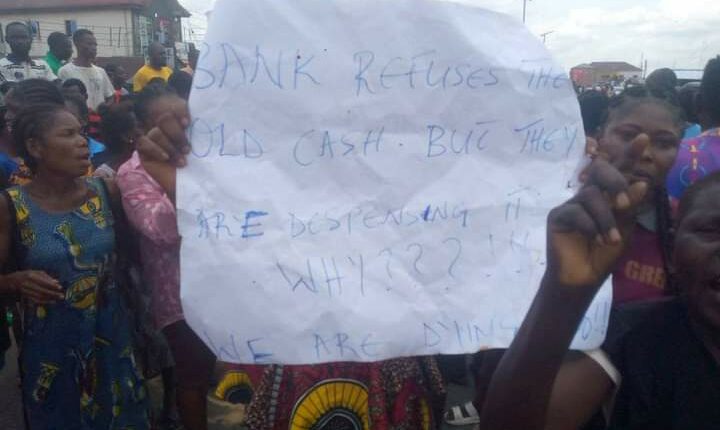 BANK REFUSES THE
OLD CASH. BUT THEY
ARE DESPENSING IT
WHY???!!
WE ARE DYING OO!!
GRE